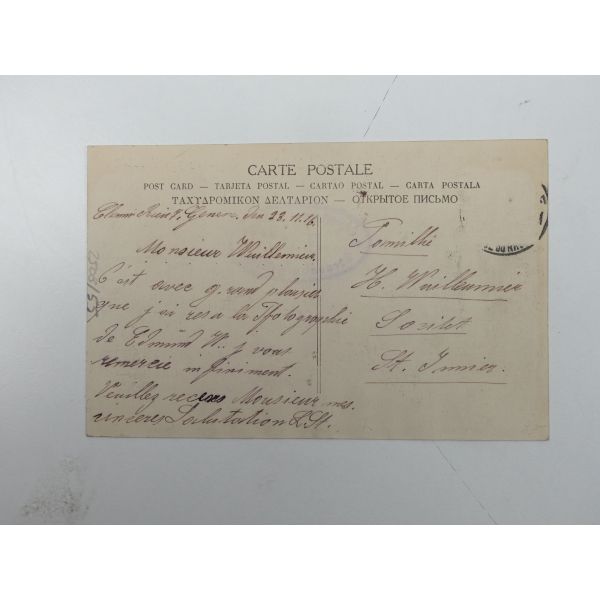 CARTE POSTALE
POST CARD — TARJETA POSTAL — CARTAO POSTAL — CARTA POSTALA
ΤΑΧΥΔΡΟΜΙΚΟΝ ΔΕΛΤΑΡΙΟΝ — ОТКРЫТОЕ ПИСЬМО
Genève, den 23.11.16
Monsieur Wuilleumier
C'est avec grand plaisir
que j'ai resu la Pfotographie
de Edmund W. j vous
remercie infiniment.
Veuillez receves Monsieur mes
sinceres Salutation L. St.
Familie
H. Wuilleumier
St. Immier.